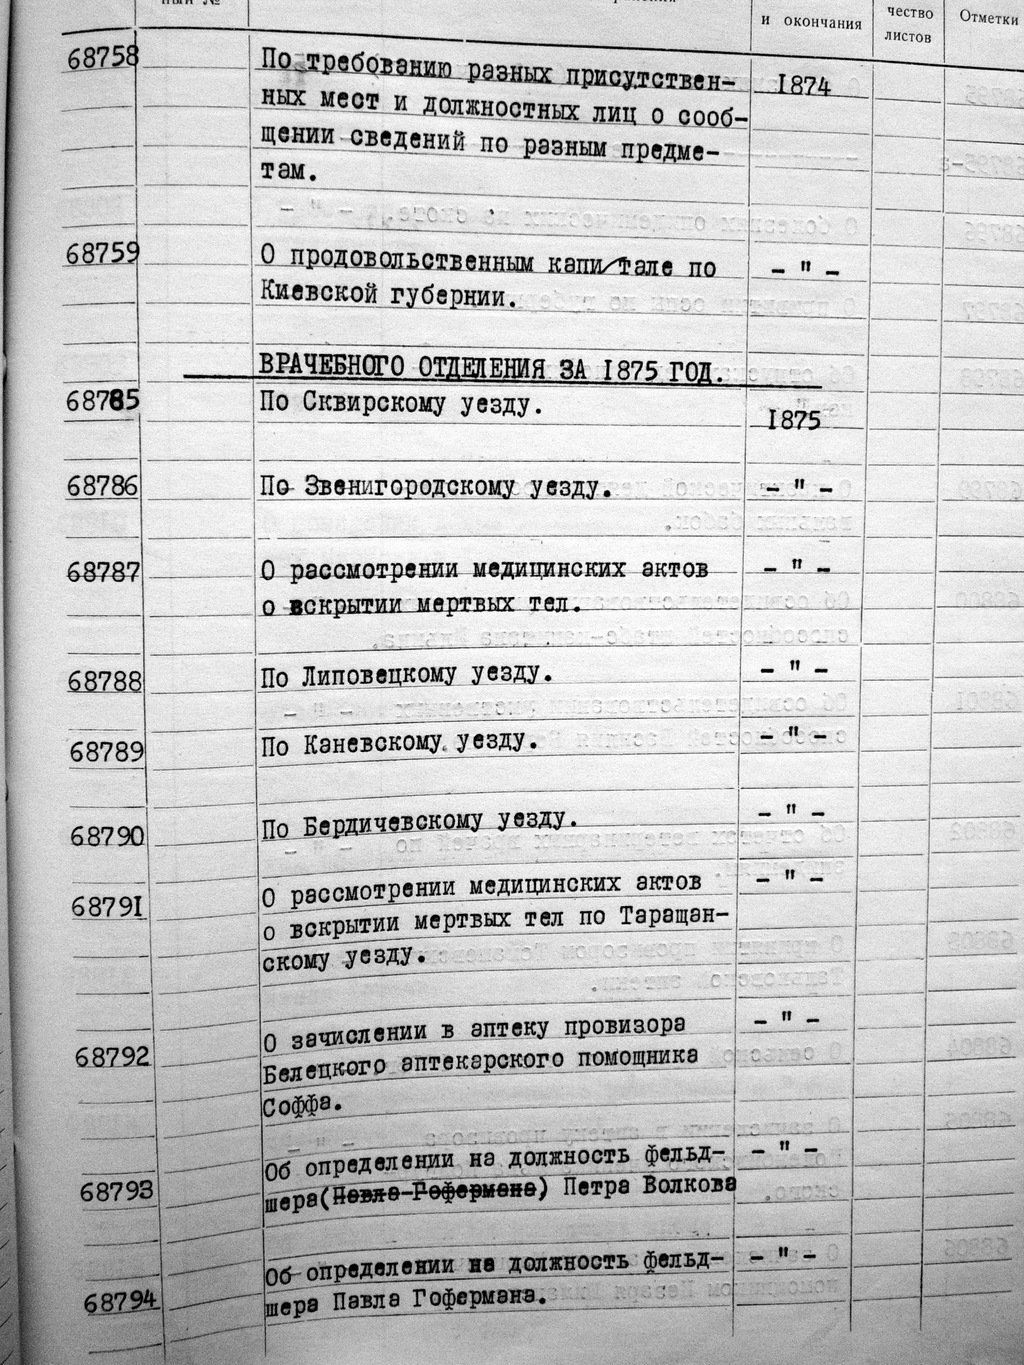 и окончания
чество
листов
Отметки
68758
По требованию разных присутствен-
1874
ных мест и должностных лиц о сооб-
щении сведений по разным предме-
там.
68759
О продовольственным капи/тале по
– " –
Киевской губернии.
ВРАЧЕБНОГО ОТДЕЛЕНИЯ ЗА 1875 ГОД.
68785
По Сквирскому уезду.
1875
68786
По Звенигородскому уезду.
– " –
68787
О рассмотрении медицинских актов
– " –
о вскрытии мертвых тел.
68788
По Липовецкому уезду.
– " –
68789
По Каневскому уезду.
– " –
68790
По Бердичевскому уезду.
– " –
68791
О рассмотрении медицинских актов
– " –
о вскрытии мертвых тел по Таращан-
скому уезду.
68792
О зачислении в аптеку провизора
– " –
Белецкого аптекарского помощника
Соффа.
68793
Об определении на должность фельд-
– " –
шера(Павла Гофермана) Петра Волкова
68794
Об определении на должность фельд-
– " –
шера Павла Гофермана.